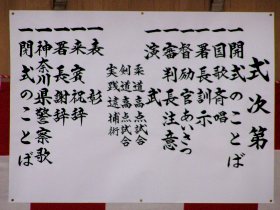 式次第
一開式のことば
一国歌斉唱
一署長訓示
一督励官あいさつ
一審判長注意
一演武
柔道高点試合
剣道高点試合
実践逮捕術
一表彰
一来賓祝辞
一署長謝辞
一神奈川県警察歌
一閉式のことば